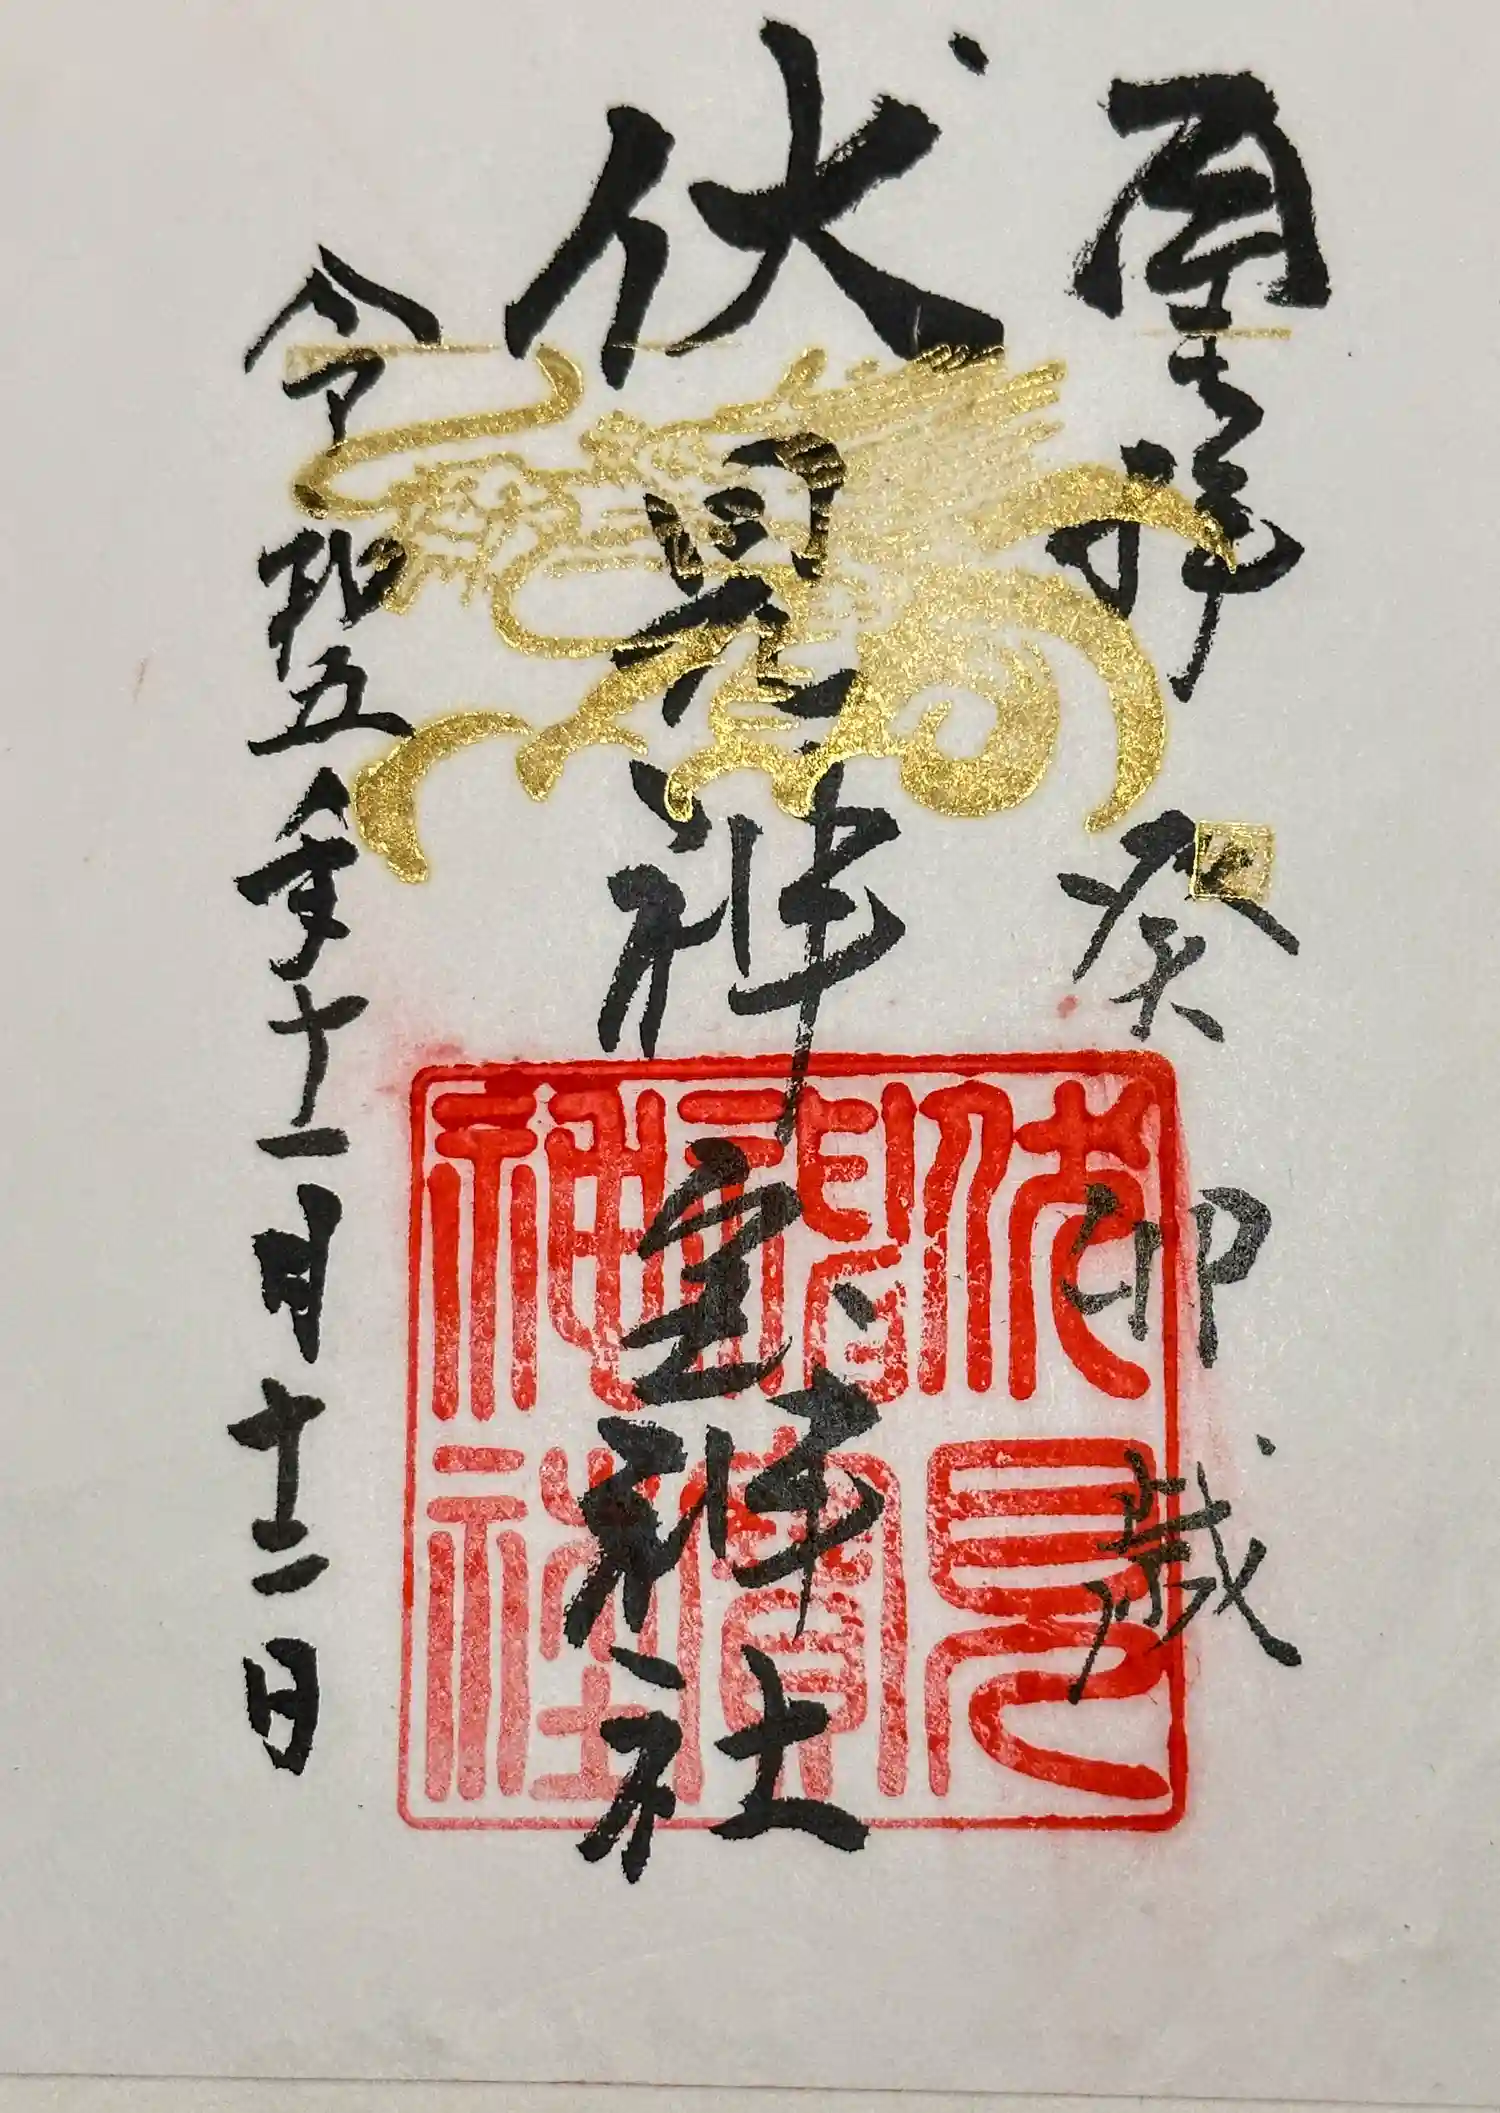 拝 癸卯歳
伏見神宝神社
令和五年十一月十二日
伏見
神寶
神社